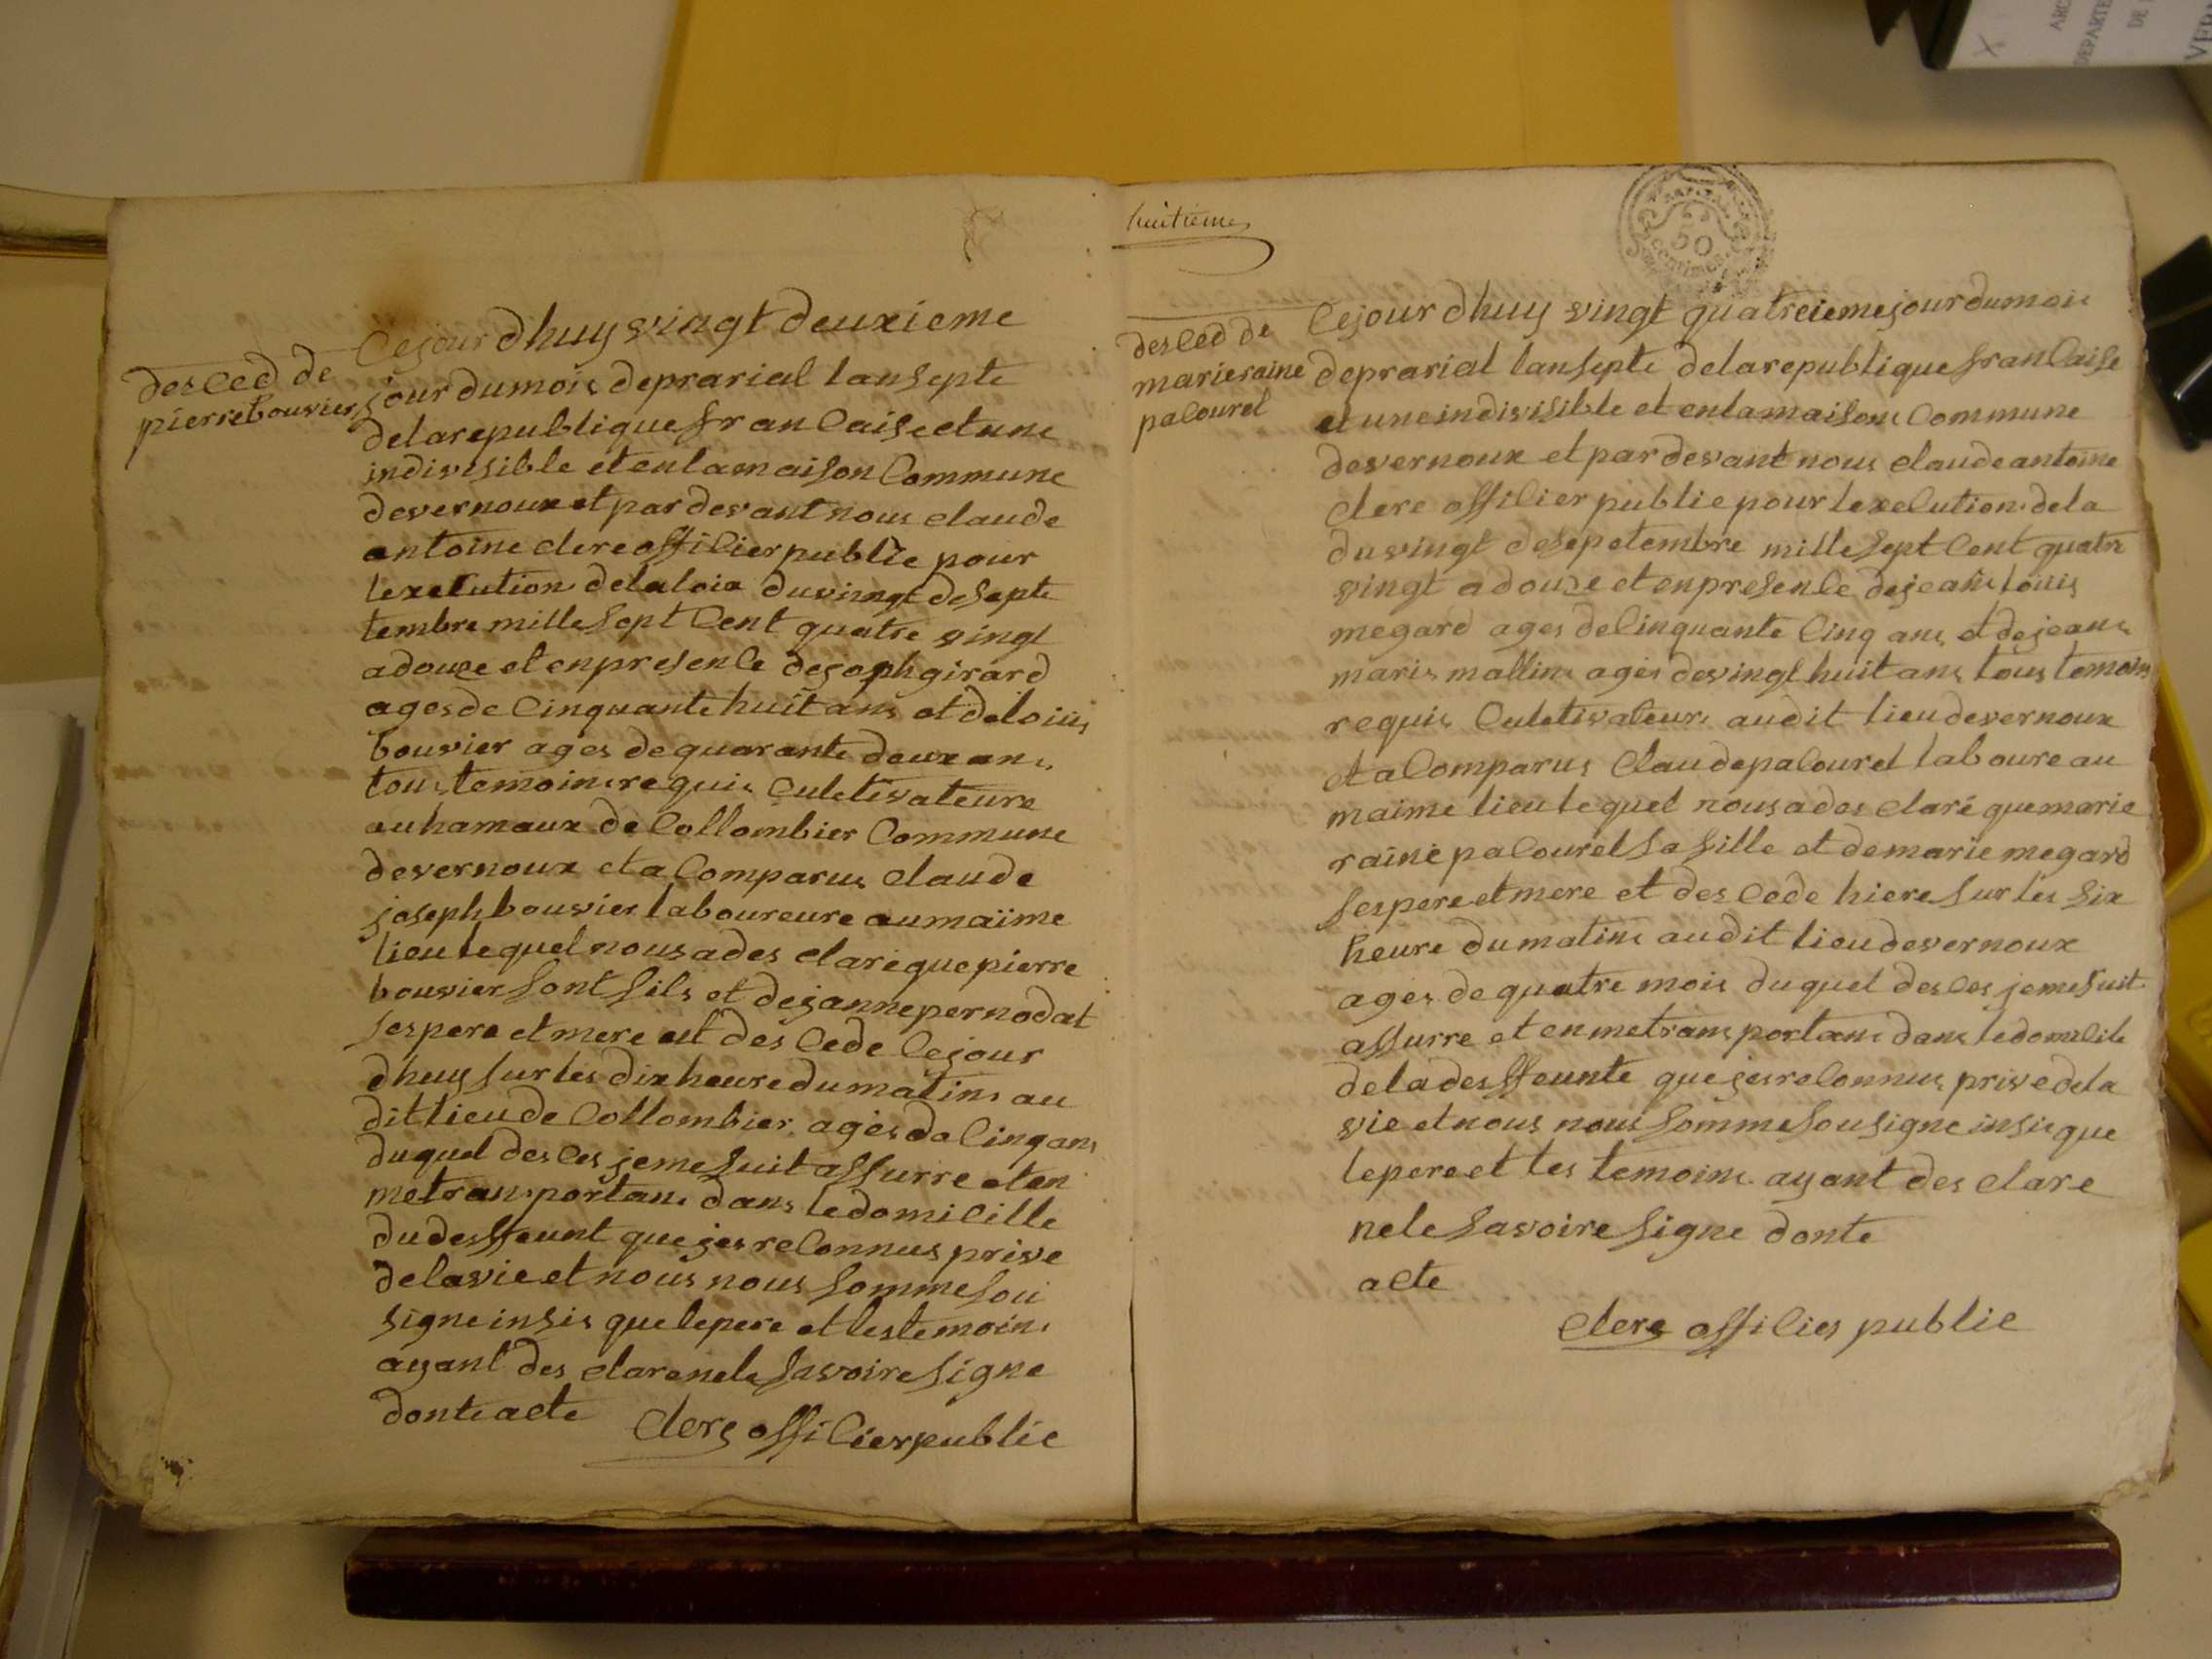 desced de
pierre bouvier
Cejour dhuy vingt deuxieme
jour du mois de prarial lan septe
de la republique francaise et une
indivisible et en la maison Commune
de vernoux et par devant nous claude
antoine clerc officier public pour
lexecution de la loix du vingt de septe
tembre mille sept Cent quatre vingt
a douze et en presence de joseph girard
ages de Cinquante huit ans et de loiiis
bouvier ages de quarante deux ans
tous temoins requis Culetivateure
au hamaux de Collombier Commune
de vernoux et a Comparus claude
joseph bouvier laboureure au maime
lieu le quel nous a des claré que pierre
bouvier sont fils et de janne pernodat
ses pere et mere est des Cede Cejour
dhuy sur les dix heure du matins au
dit lieu de Collombier ages de Cinq ans
du quel des Ces je me suit assurre et en
me transportans dans le domicille
du desffeunt que jes reConnus prive
de la vie et nous nous somme sou
signe insis que le pere et les temoins
ayant des clare ne le savoire signe
donte acte
Clerc officier public
huitieme
50
Centimes
desced de
marie raine
paCouret
Cejour dhuy vingt quatreieme jour du mois
de prarial lan septe de la republique francaise
et une indivisible et en la maison Commune
de vernoux et par devant nous claude antoine
clerc officier public pour lexecution de la
du vingt de sepetembre mille sept Cent quatre
vingt a douze et en presence de jean louis
megard ages de Cinquante Cinq ans et de jean
marie mallin ages de vingt huit ans tous temoins
requis Culetivateurs audit lieu de vernoux
et a Comparus Claude paCouret laboure au
maime lieu le quel nous a des claré que marie
raine paCouret sa fille et de marie megard
ses pere et mere et des Cede hiere sur les six
heure du matins audit lieu de vernoux
ages de quatre mois du quel des Ces je me suit
assurre et en me transportans dans le domicile
de la desffeunte que jes reConnus prive de la
vie et nous nous somme sousigne insis que
le pere et les temoins ayant des clare
ne le savoire signe donte
acte
Clerc officier public
DE